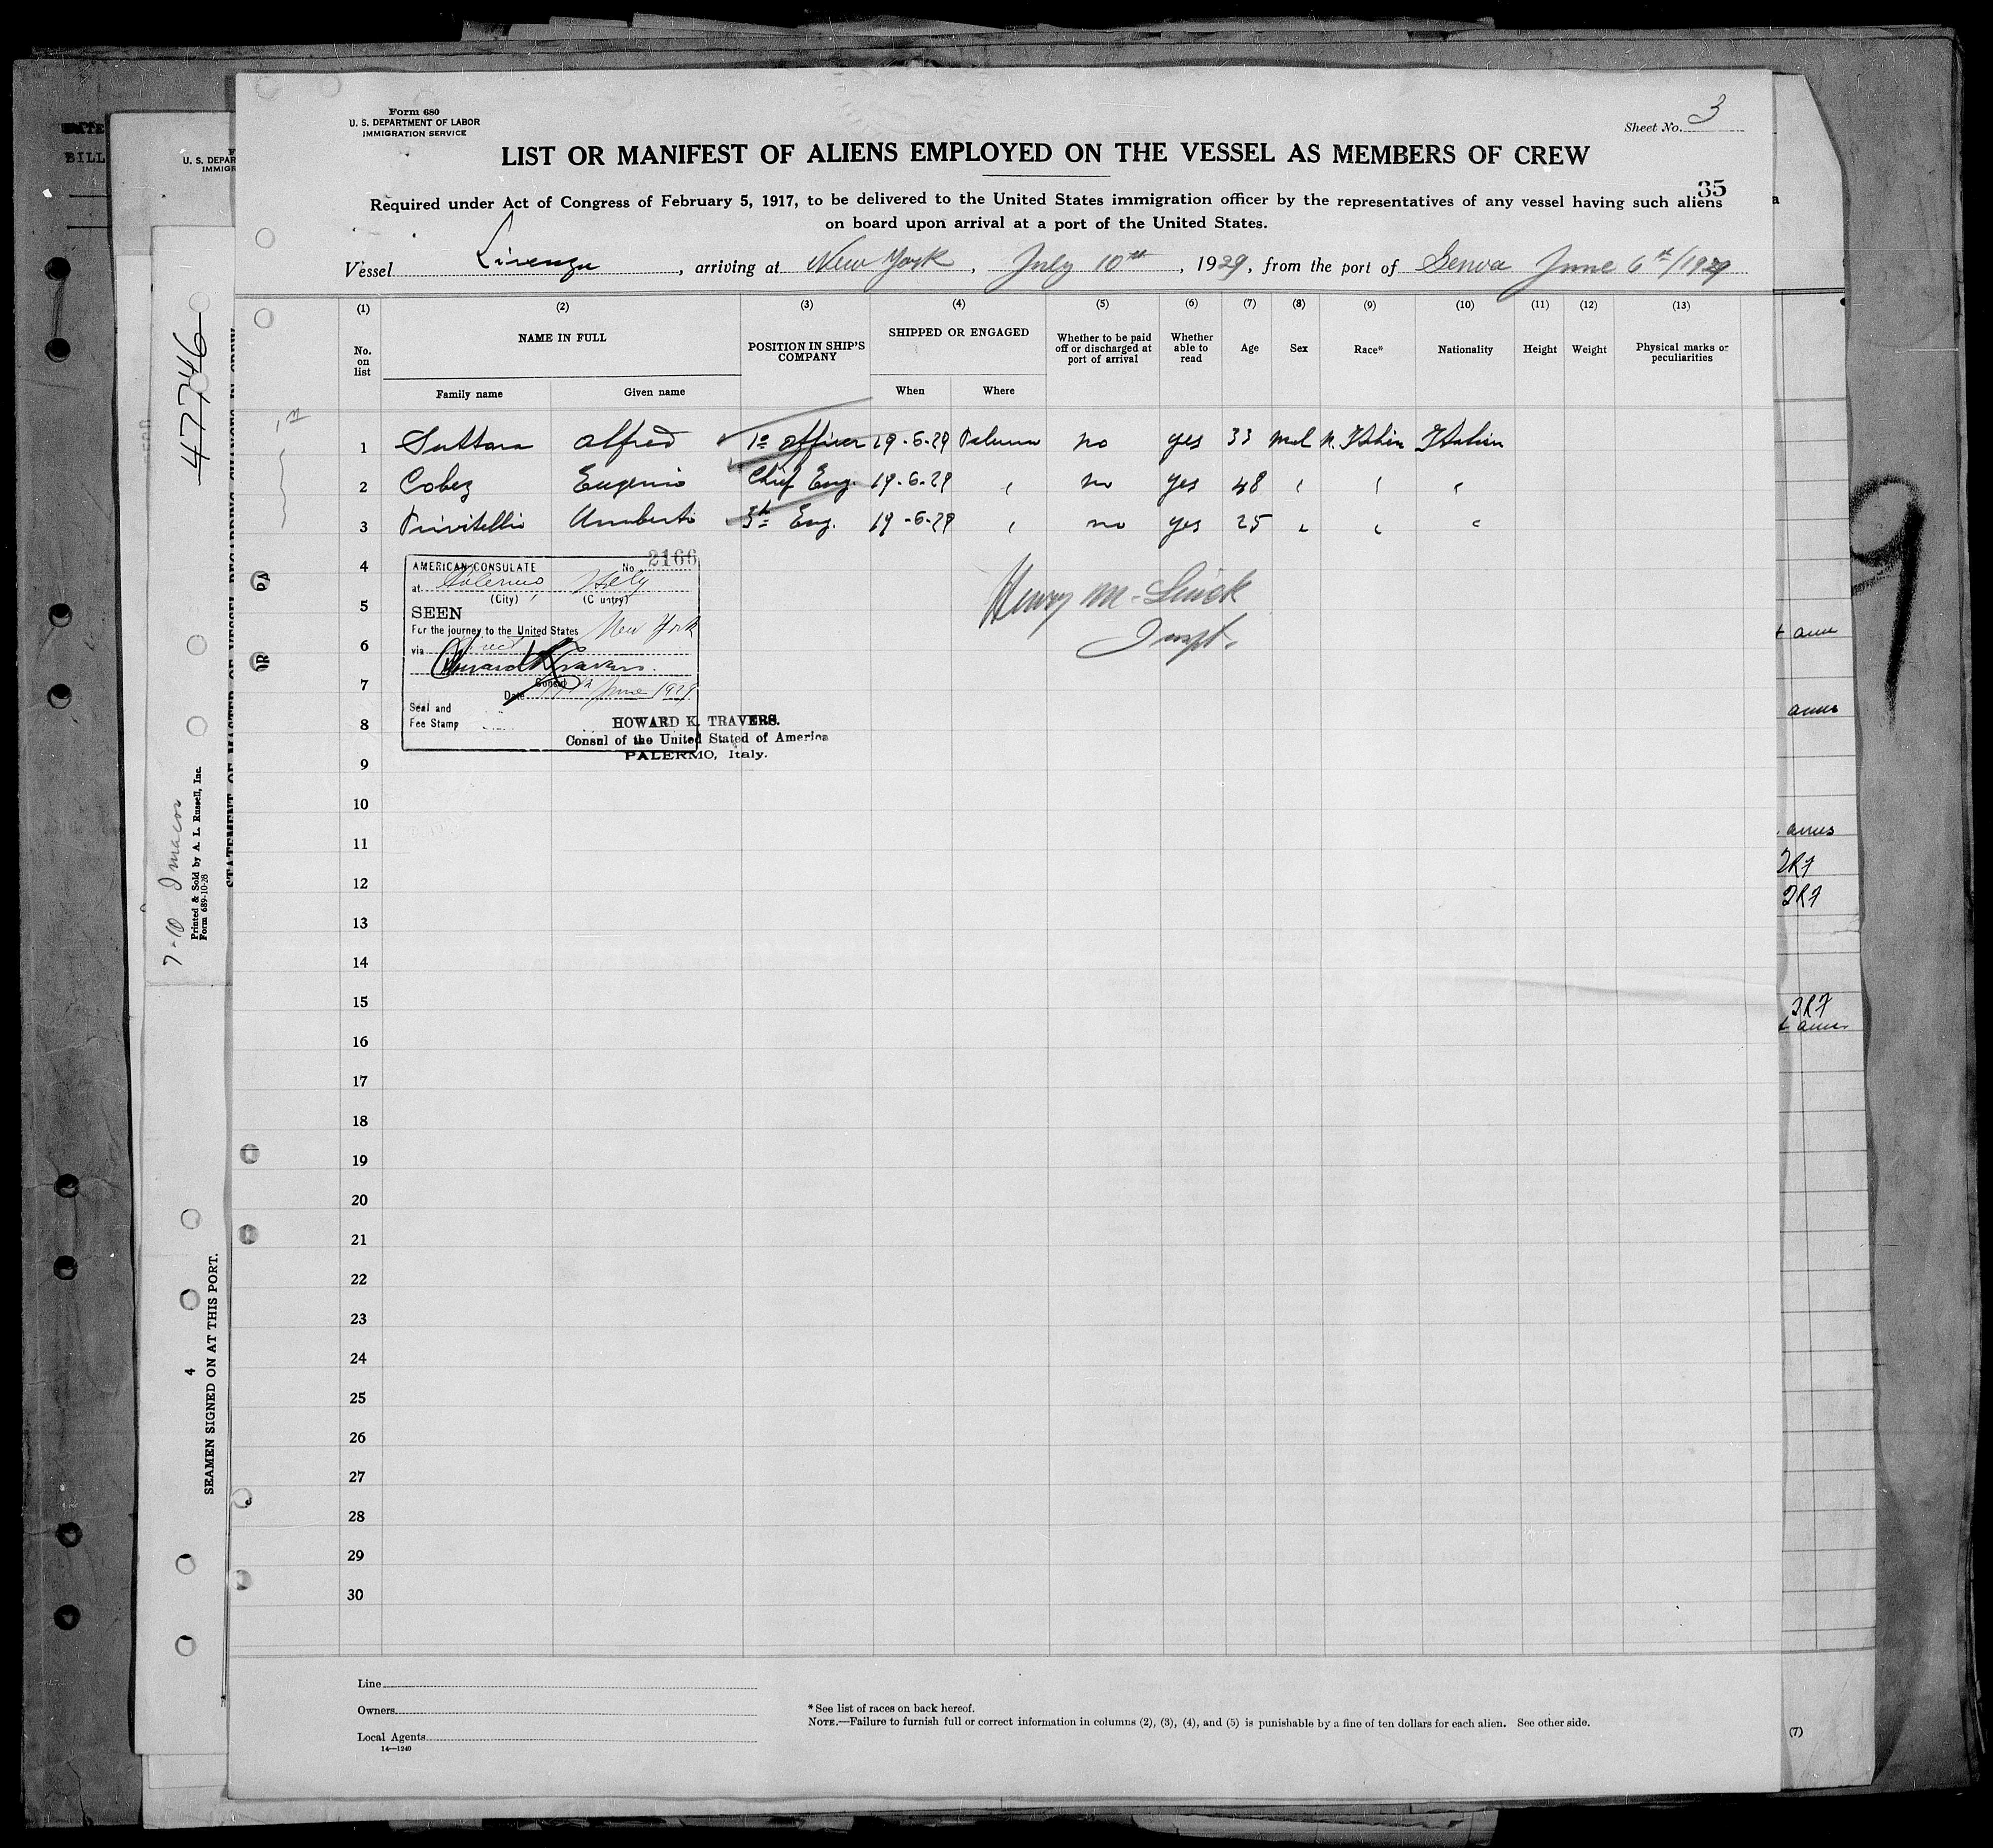 Form 680
U. S. DEPARTMENT OF LABOR
IMMIGRATION SERVICE
Sheet No. 3
LIST OR MANIFEST OF ALIENS EMPLOYED ON THE VESSEL AS MEMBERS OF CREW
35
Required under Act of Congress of February 5, 1917, to be delivered to the United States immigration officer by the representatives of any vessel having such aliens
on board upon arrival at a port of the United States.
Vessel, arriving at New York, July 10th, 1929, from the port of Genoa June 6th/1929
(1) (2) (3) (4) (5) (6) (7) (8) (9) (10) (11) (12) (13)
No. on list
NAME IN FULL
Family name Given name
POSITION IN SHIP'S COMPANY
SHIPPED OR ENGAGED
When Where
Whether to be paid off or discharged at port of arrival
Whether able to read
Age Sex Race* Nationality Height Weight
Physical marks or peculiarities
1 Alfred 1º officer 19-6-29 Palermo no yes 33 Italian
2 Eugenio Chief Eng. 19-6-29 " no yes 48 " " "
3 Umberto 3th Eng. 19-6-29 " no yes 25 " " "
4
5
6
7
8
9
10
11
12
13
14
15
16
17
18
19
20
21
22
23
24
25
26
27
28
29
30
AMERICAN CONSULATE No. 2166
at Palermo Italy
(City) (Country)
SEEN
For the journey to the United States New York
via Direct
Consul
Date June 1929
Seal and
Fee Stamp
HOWARD K. TRAVERS.
Consul of the United Stated of America
PALERMO, Italy.
Henry M.
Inspt.
Line
Owners
Local Agents
14—1240
*See list of races on back hereof.
NOTE.—Failure to furnish full or correct information in columns (2), (3), (4), and (5) is punishable by a fine of ten dollars for each alien. See other side.
47746
Printed & Sold by A. L. Russell, Inc.
Form 689-10-28
4
SEAMEN SIGNED ON AT THIS PORT.
BILL
U. S. DEPAR
IMMIGR
9
(7)